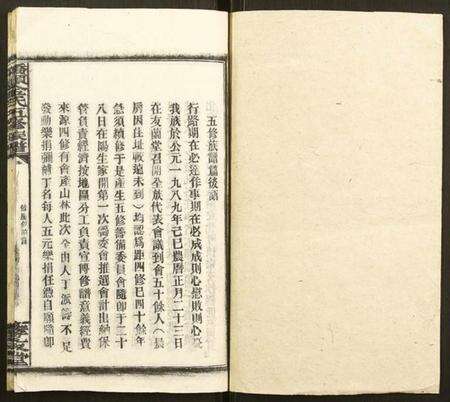 五修族譜篇後語
行路期在必達作事期在必成成則心慰敗則心
我族於公元一九八九年己巳農曆正月二十三日
在友蘭堂召開全族代表會議到會五十餘人（長
房因住址較遠未到）均認爲距四修已四十餘年
急須續修于是産生五修籌備委員會隨即于二十
八日在陽生家開第一次籌委會推選會計出納保
管負責經濟按地區分工負責宣傳修譜意義經費
來源四修有會產山林此次全由人丁派籌不足
發動樂捐彌補丁名每人五元樂捐任憑自願隨即
氏五修族譜
友堂